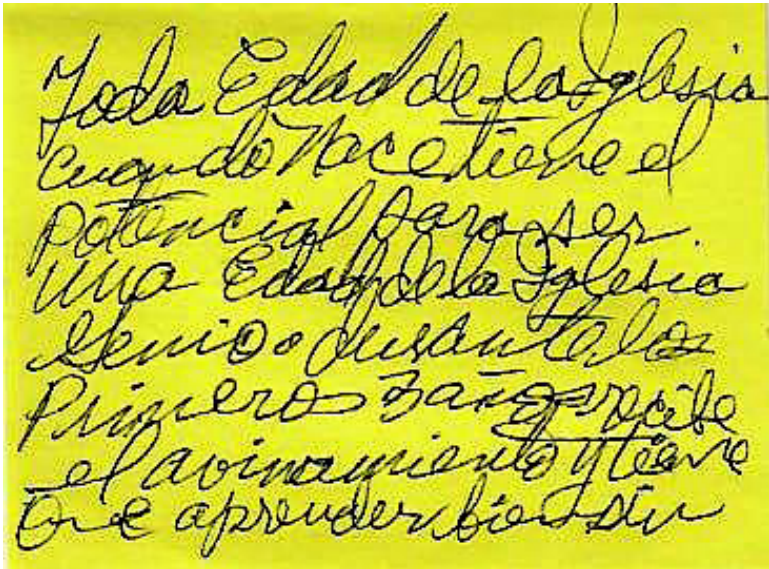 Toda Edad de la Iglesia
cuando Nace tiene el
Potencial para ser
una Edad de la Iglesia
Genio. durante los
Primeros 3 años recibe
el avivamiento y tiene
Que aprender bien sin